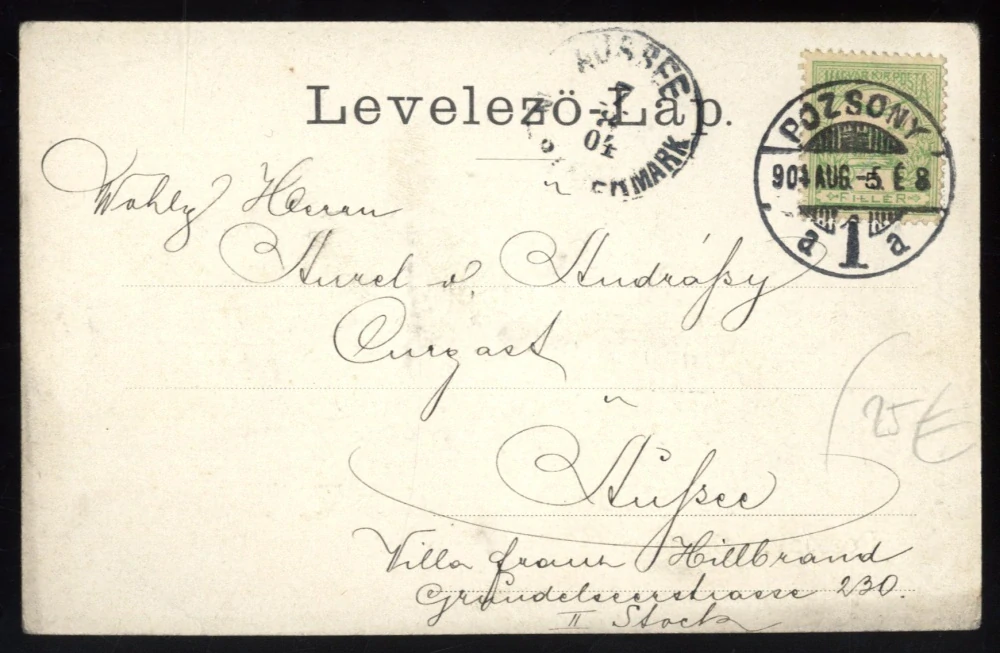 Levelező-Lap.
AUSSEE
7
04
MARK
MAGYAR KIR. POSTA
FILLER
POZSONY
904 AUG.-5. É 8
a 1 a
Wohlg Herrn
Aurel v. Andráßy
Curgast
in
Außee
25 €
Villa Franz Hillbrand
Grundelseerstrasse 230.
II Stock